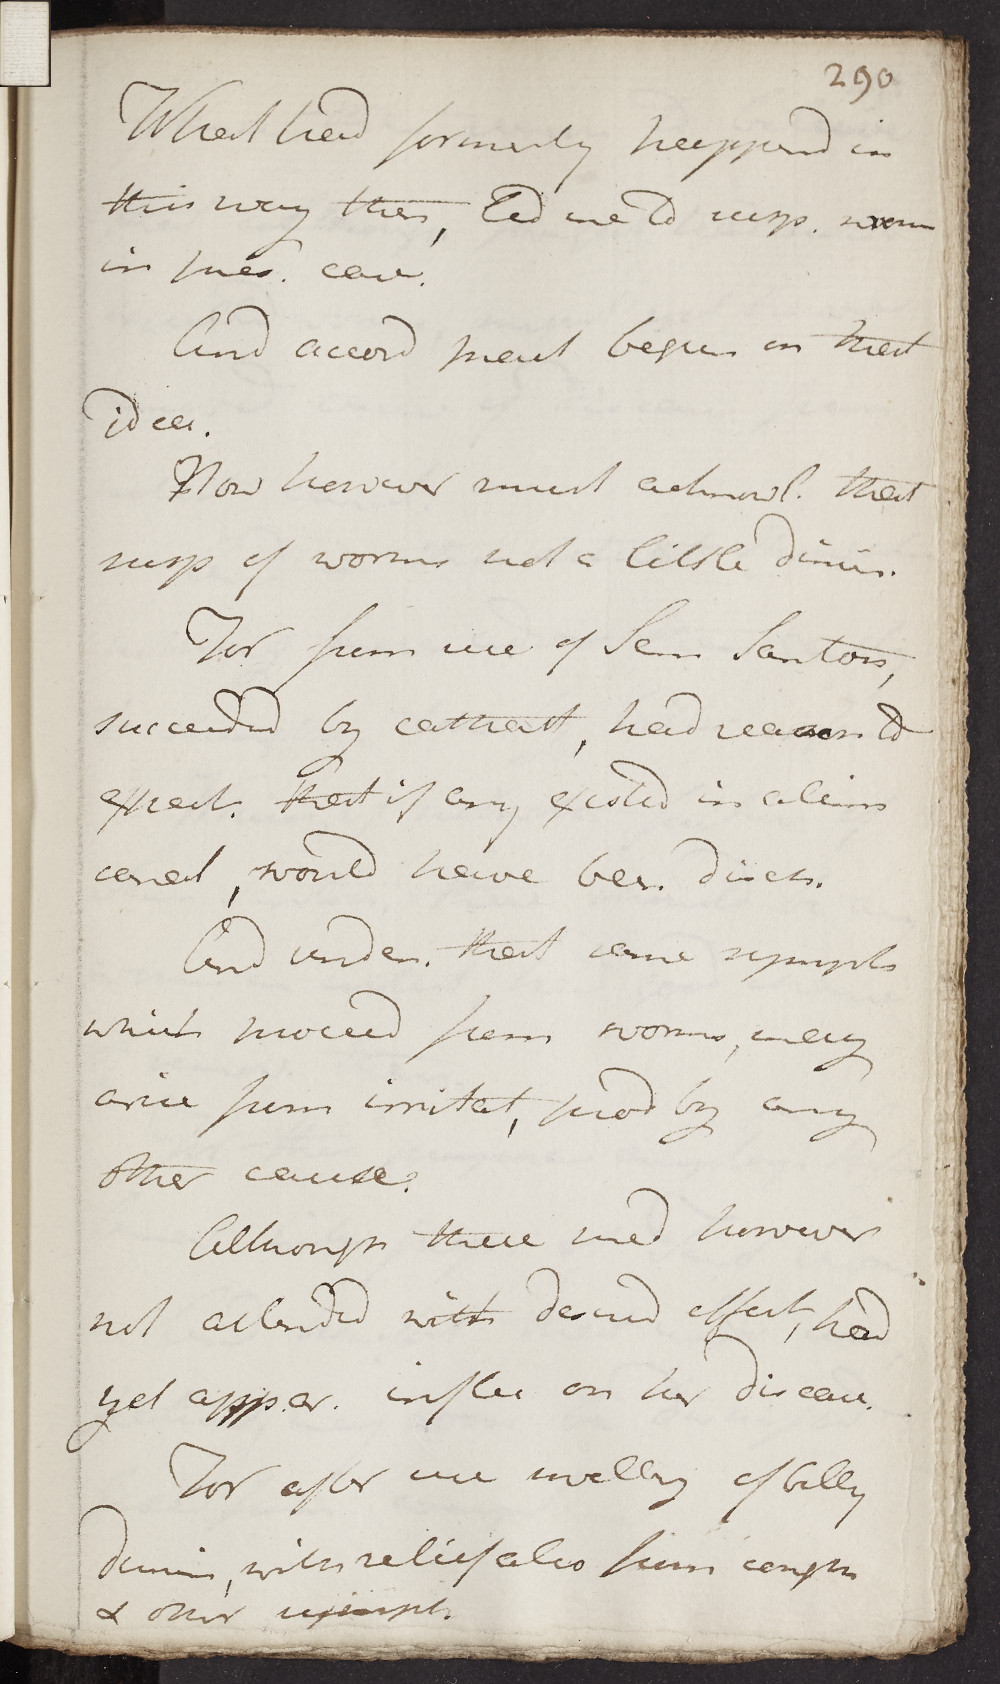 290
What had formerly happend in
this way then, led me to susp. worm
in pres. case.
And accord pract begun on that
idea.
Now however must acknowl. that
susp of worms not a little dimin.
For from use of Sem Santon,
succeeded by cathart, had reason to
expect. that if any existed in alim
canal, would have ben. disch.
And under. that same sympts
which proceed from worms, may
arise from irritat, prod by any
other cause.
Although these med however
not attended with desired effect, had
yet appar. influ on her disease.
For after use swelling of belly
dimin, with relief also from cough
& other sympt.